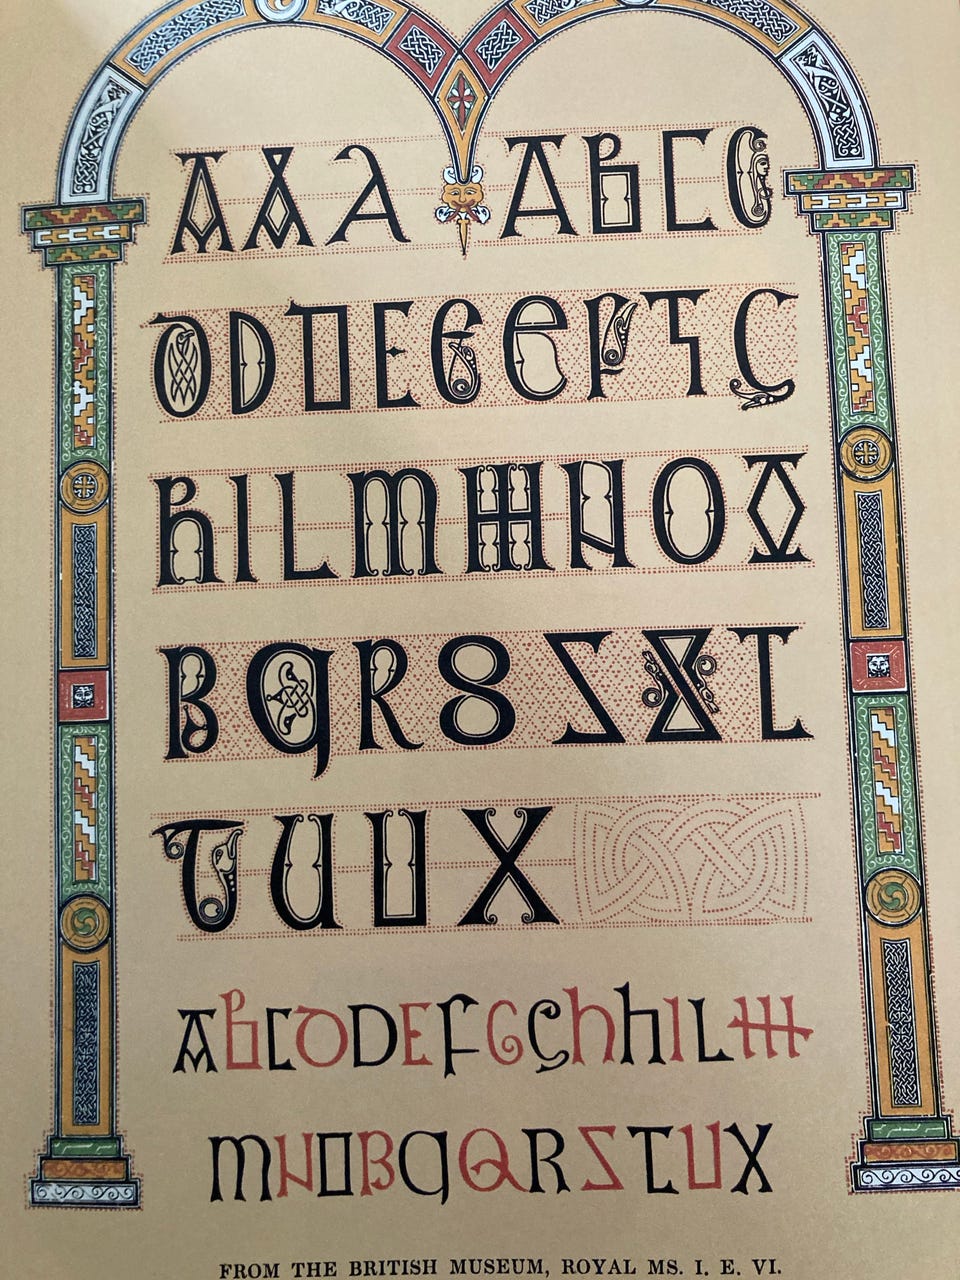 A A A A B C C
D D D E E E F G G
H I L M M N O O
B Q R S S X T
T U U X
A B C D D E F G G h h I L M
M N O B Q Q R S T U X
FROM THE BRITISH MUSEUM, ROYAL MS. I. E. VI.